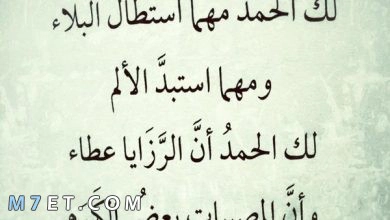 لك الحمد مهما استطال البلاء
ومهما استبدَّ الألم
لك الحمدُ أنَّ الرَّزَايا عطاء
وأنَّ المصيبات بعضُ الكَرَم
M7ET.COM